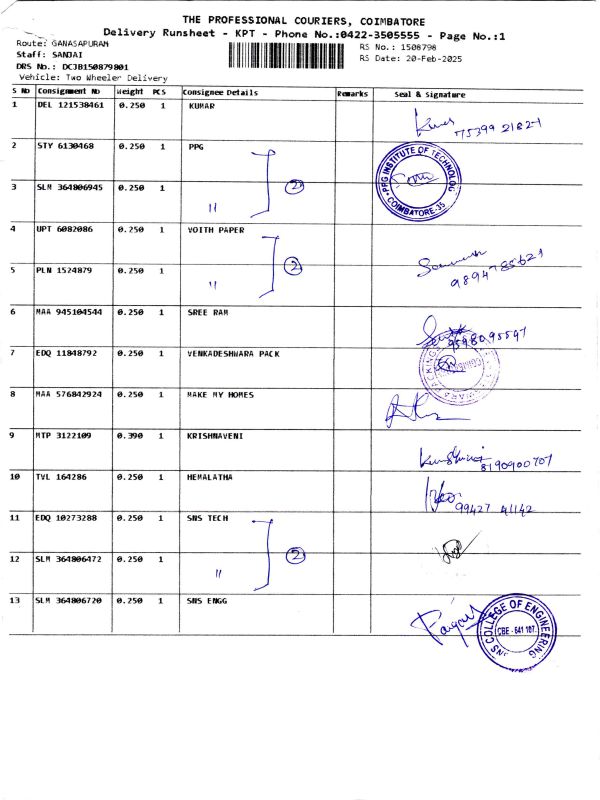 THE PROFESSIONAL COURIERS, COIMBATORE
Delivery Runsheet - KPT - Phone No.:0422-3505555 - Page No.:1
Route: GANASAPURAM
Staff: SANJAI
DRS No.: DCJB150879801
Vehicle: Two Wheeler Delivery
RS No.: 1508798
RS Date: 20-Feb-2025
S No Consignment No Weight PCS Consignee Details Remarks Seal & Signature
1 DEL 121538461 0.250 1 KUMAR
75399 21827
2 STY 6130468 0.250 1 PPG
PPG INSTITUTE OF TECHNOLOGY COIMBATORE-35
3 SLM 364806945 0.250 1 " 2
4 UPT 6082086 0.250 1 VOITH PAPER
5 PLN 1524879 0.250 1 " 2
6 MAA 945104544 0.250 1 SREE RAM
7 EDQ 11848792 0.250 1 VENKADESHWARA PACK
8 MAA 576842924 0.250 1 MAKE MY HOMES
9 MTP 3122109 0.390 1 KRISHNAVENI
8190900707
10 TVL 164286 0.250 1 HEMALATHA
99427 41142
11 EDQ 10273288 0.250 1 SNS TECH
12 SLM 364806472 0.250 1 " 2
13 SLM 364806720 0.250 1 SNS ENGG
SNS COLLEGE OF ENGINEERING CBE - 641 107